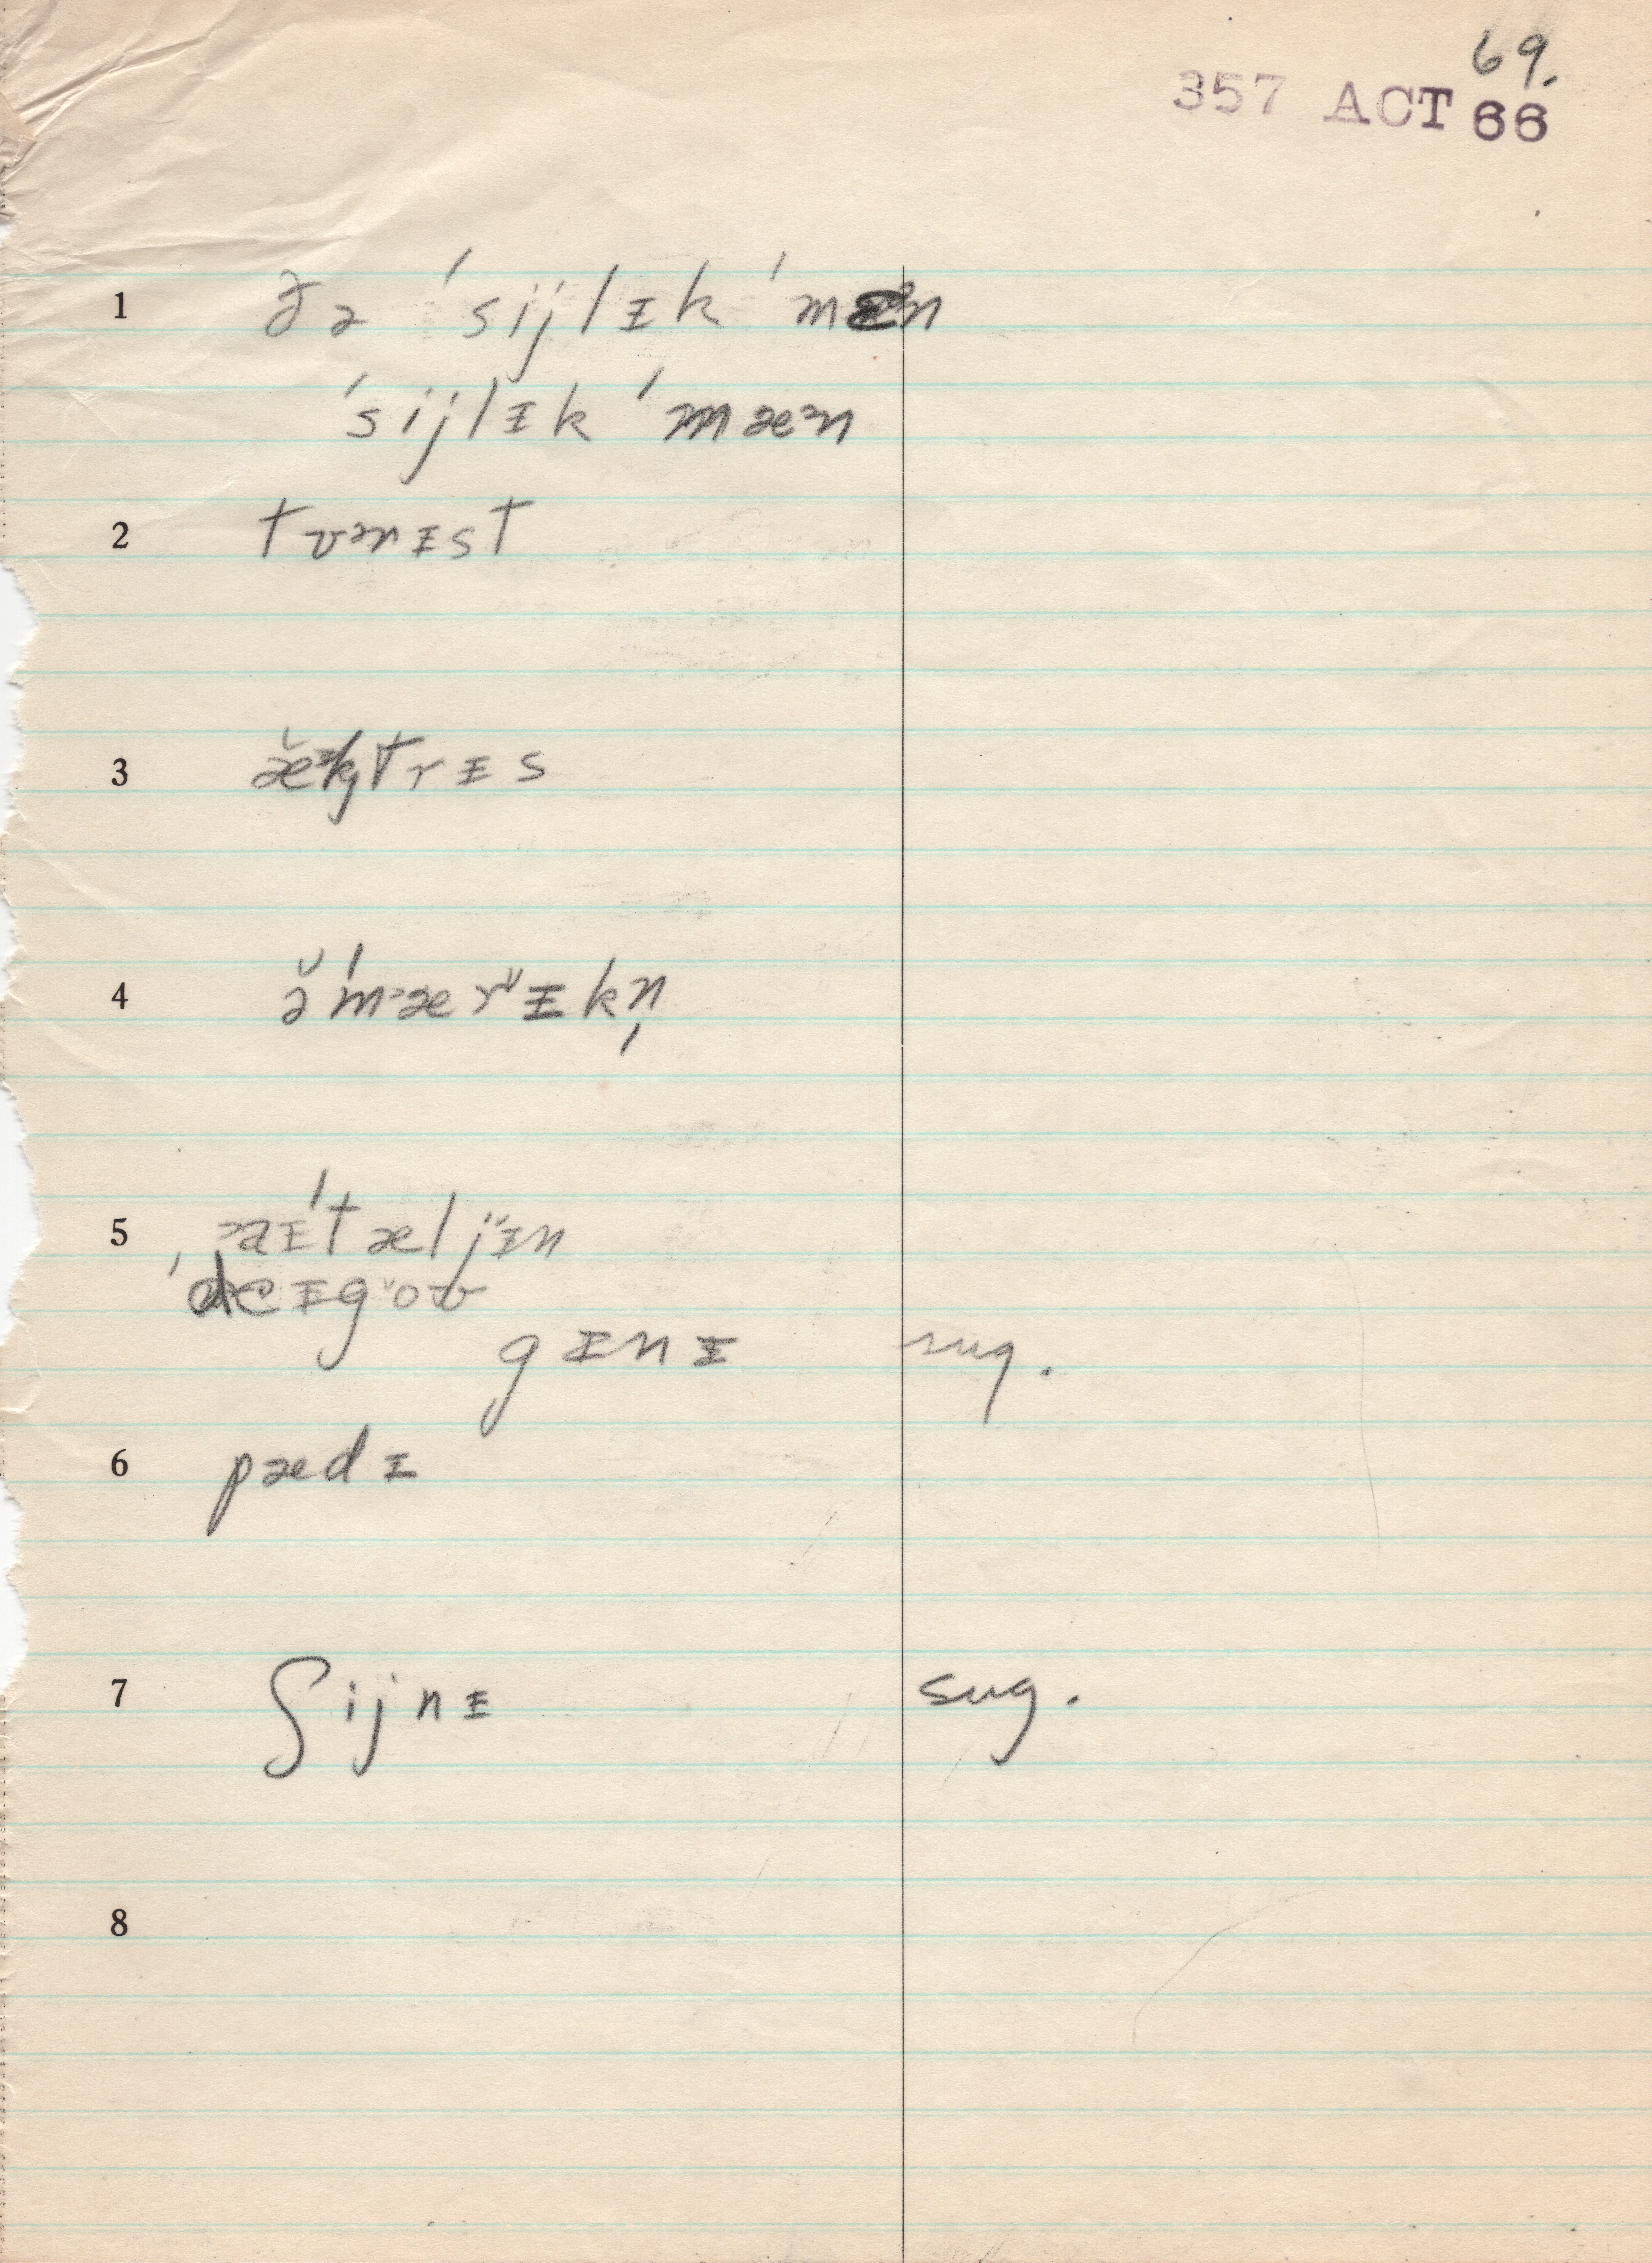 69.
357 ACT 66
1 ðə ˈsijlɪk ˈmæᵊn
ˈsijlɪk ˈmæᵊn
2 tʊᵊrɪst
3 trɪs
4 ə̆ˈmᵊærˇɪkn̩
5 ᵊaɪˈtæljˇɪn
ˈdeɪgˇoʊ
gɪnɪ sug.
6 pædɪ
7 ʃijnɪ sug.
8